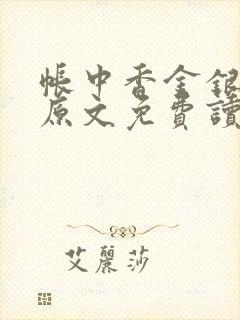 帳中香金銀
原文免費讀
艾麗莎